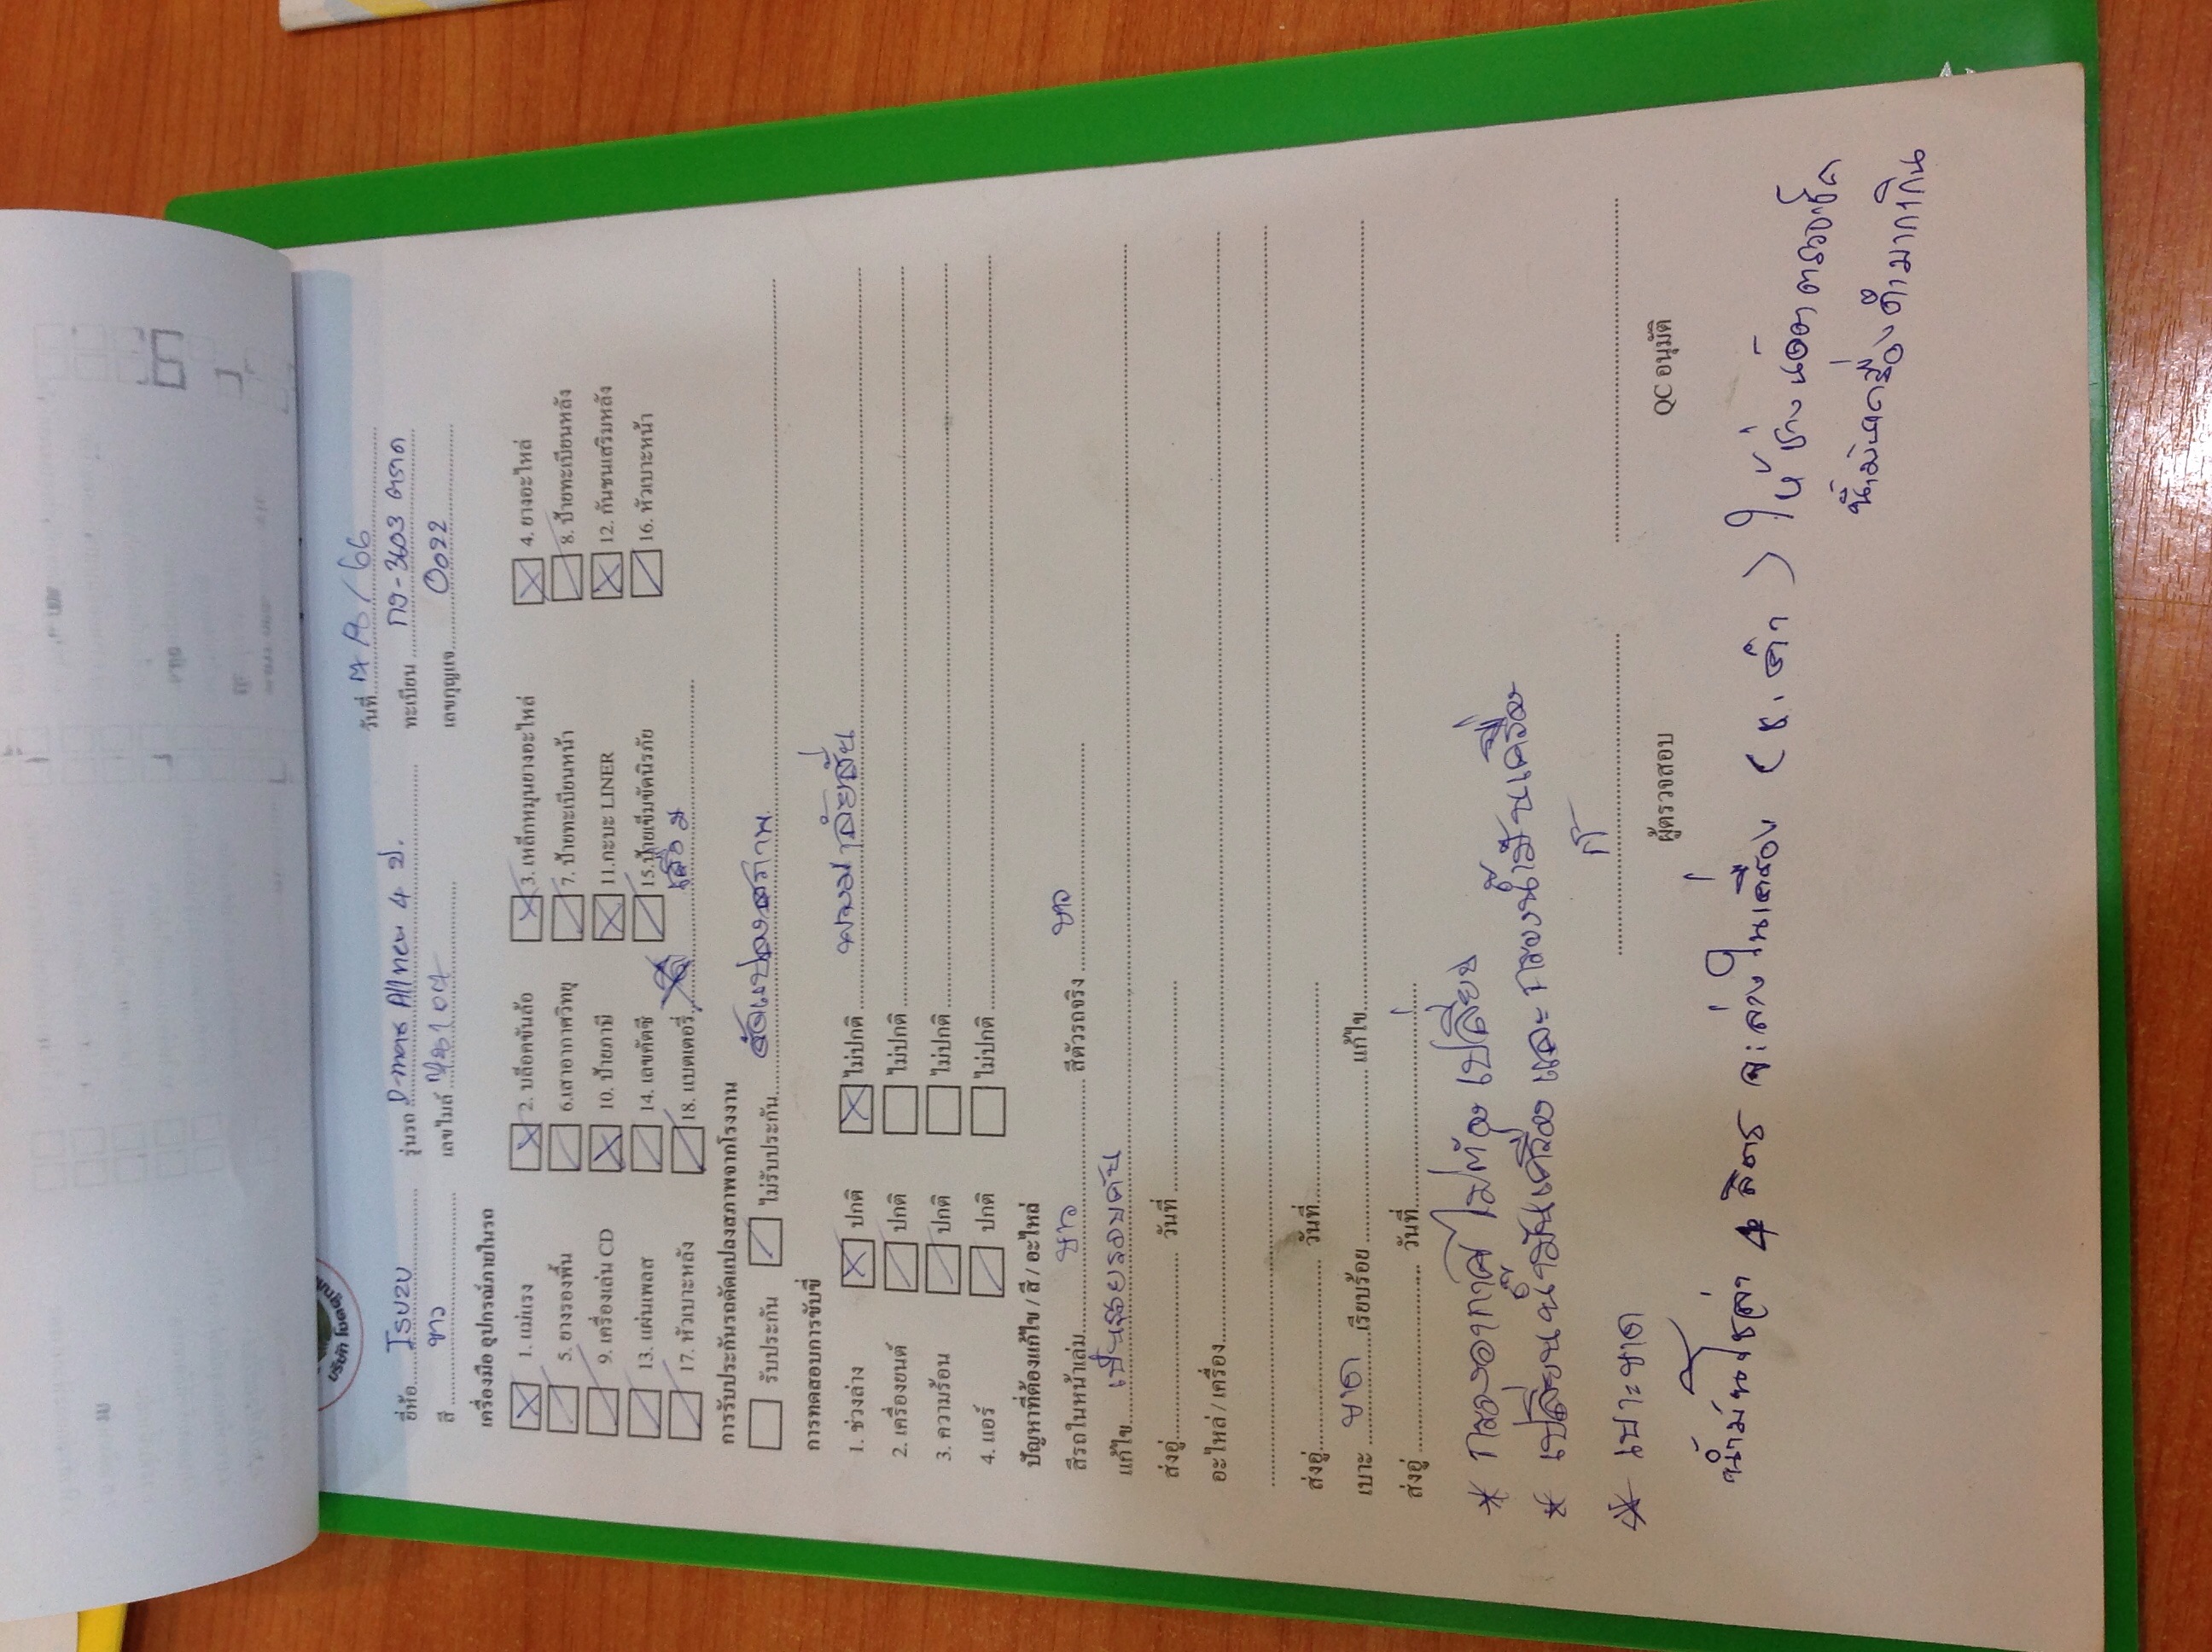 วันที่ 17 / 8 / 66
ยี่ห้อ อีซูซุ รุ่นรถ D-max All new 4 ป. ทะเบียน กง-3603 ตราด
สี ขาว เลขไมล์ เลขกุญแจ 0092
เครื่องมือ อุปกรณ์ภายในรถ
1. แม่แรง 2. บล็อคขันล้อ 3. เหล็กหมุนยางอะไหล่ 4. ยางอะไหล่
5. ยางรองพื้น 6.เสาอากาศวิทยุ 7. ป้ายทะเบียนหน้า 8. ป้ายทะเบียนหลัง
9. เครื่องเล่น CD 10. ป้ายภาษี 11.กะบะ LINER 12. กันชนเสริมหลัง
13. แผ่นเพลส 14. เลขคัตซี 15.ป้ายเข็มขัดนิรภัย 16. หัวเบาะหน้า
17. หัวเบาะหลัง 18. แบตเตอรี่ เสื่อม
การรับประกันรถดัดแปลงสภาพจากโรงงาน
รับประกัน ไม่รับประกัน ดัดแปลงสภาพ
การทดสอบการขับขี่
1. ช่วงล่าง ปกติ ไม่ปกติ พวงมาลัยสั่น
2. เครื่องยนต์ ปกติ ไม่ปกติ
3. ความร้อน ปกติ ไม่ปกติ
4. แอร์ ปกติ ไม่ปกติ
ปัญหาที่ต้องแก้ไข / สี / อะไหล่
สีรถในหน้าเล่ม ขาว สีตัวรถจริง ขาว
แก้ไข เป็นรอยรอบคัน
ส่งอู่ วันที่
อะไหล่ / เครื่อง
ส่งอู่ วันที่
เบาะ ขาด เรียบร้อย แก้ไข
ส่งอู่ วันที่
* กรองอากาศ ไม่ต้องเปลี่ยน
* เปลี่ยนน้ำมันเครื่อง และ กรองน้ำมันเครื่อง
* เบาะขาด
ผู้ตรวจสอบ QC อนุมัติ
น้ำมันโซล่า 4 ลิตร
น้ำมันเครื่องดำมากเกิน